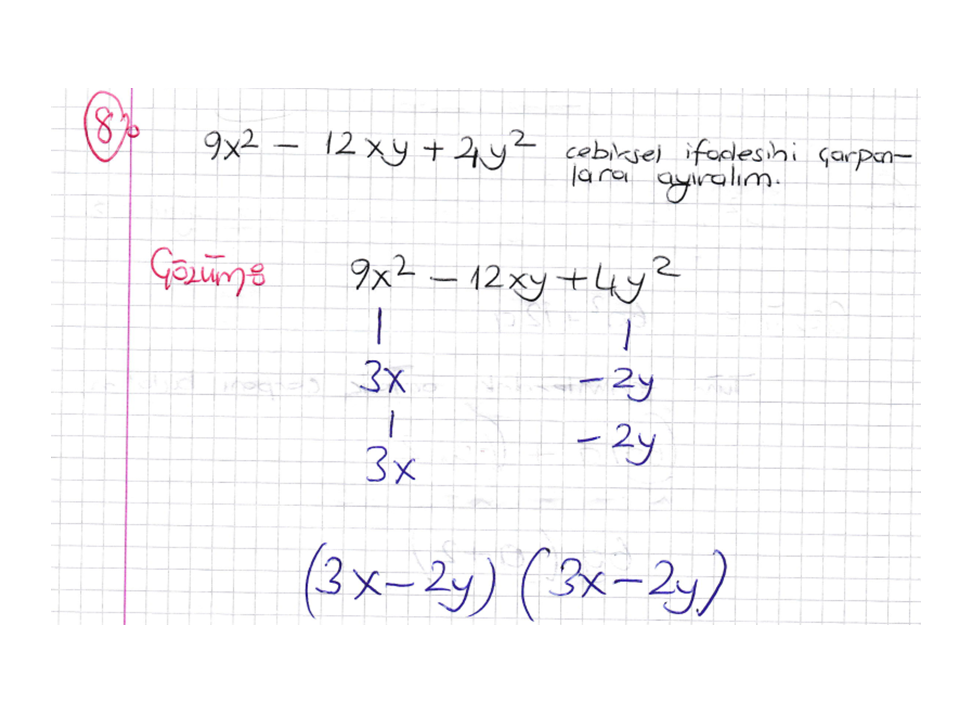 8) 9x² - 12xy + 4y² cebirsel ifadesini çarpan-
lara ayıralım.
Çözüm: 9x² - 12xy + 4y²
3x -2y
3x -2y
(3x-2y) (3x-2y)